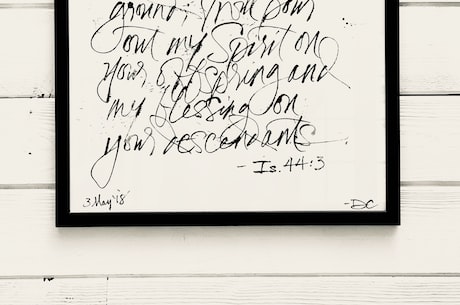 ground; I will pour
out my Spirit on
your offspring and
my blessing on
your descendants
- Is. 44:3
3. May '18
-DC